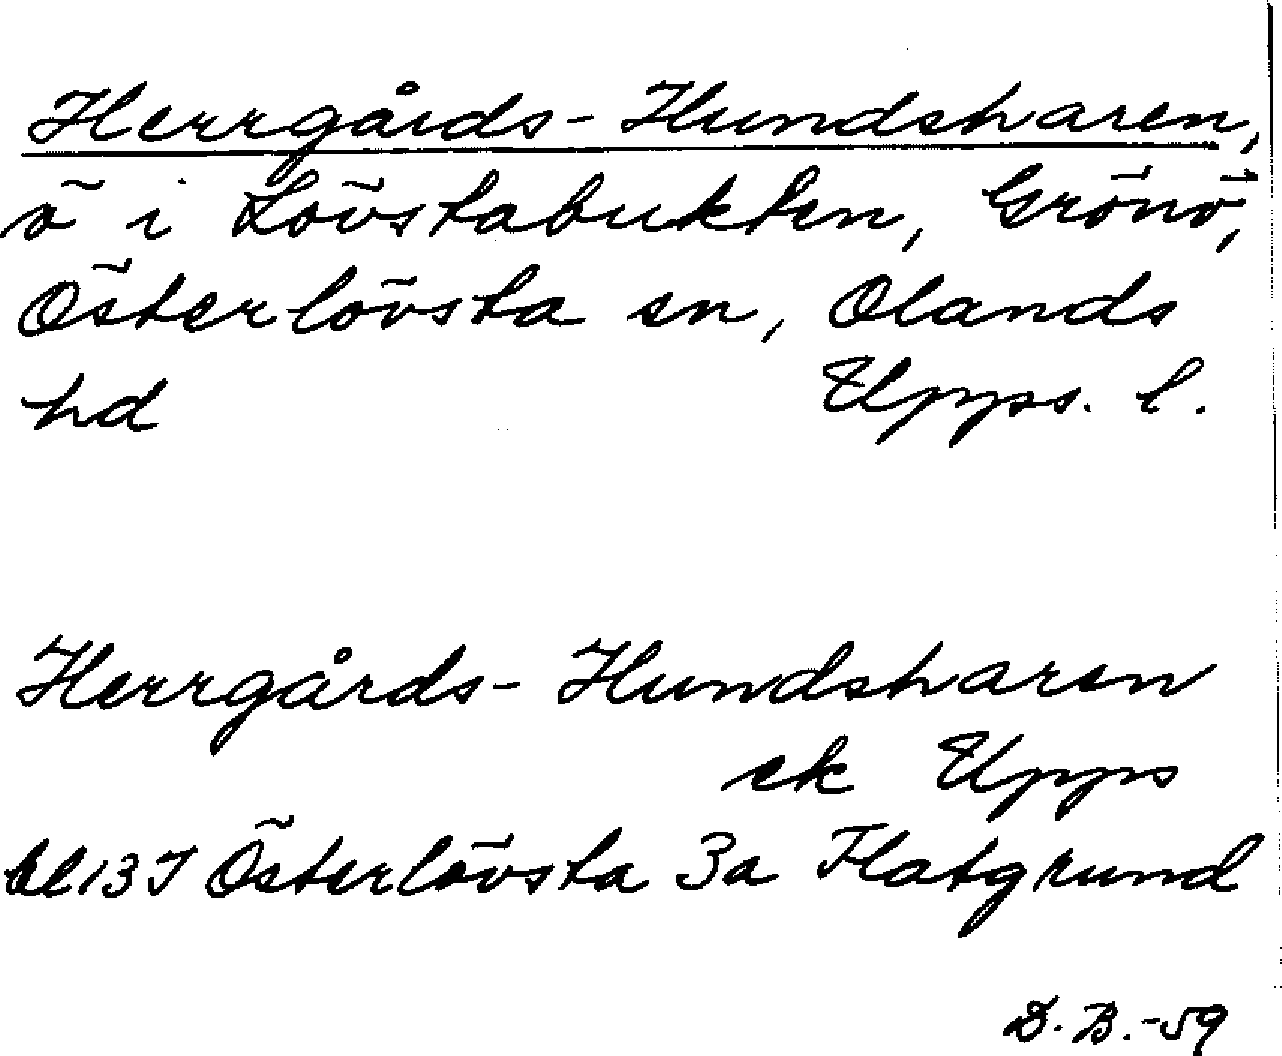 Herrgårds-Hundsharen,
ö i Lövstabukten, Grönö,
Österlövsta sn, Olands
hd Upps. l.
Herrgårds-Hundsharen
ek Upps
bl 13 I Österlövsta 3a Flatgrund
D.B.-59